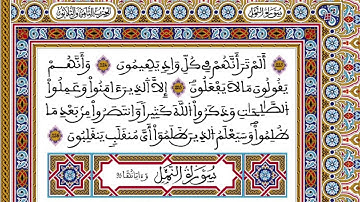 سورة النمل
أَلَمْ تَرَ أَنَّهُمْ فِي كُلِّ وَادٍ يَهِيمُونَ وَأَنَّهُمْ
يَقُولُونَ مَا لَا يَفْعَلُونَ إِلَّا الَّذِينَ ءَامَنُوا وَعَمِلُوا
الصَّٰلِحَٰتِ وَذَكَرُوا اللَّهَ كَثِيرًا وَانتَصَرُوا مِنۢ بَعْدِ مَا
ظُلِمُوا وَسَيَعْلَمُ الَّذِينَ ظَلَمُوا أَيَّ مُنقَلَبٍ يَنقَلِبُونَ
سورة النمل